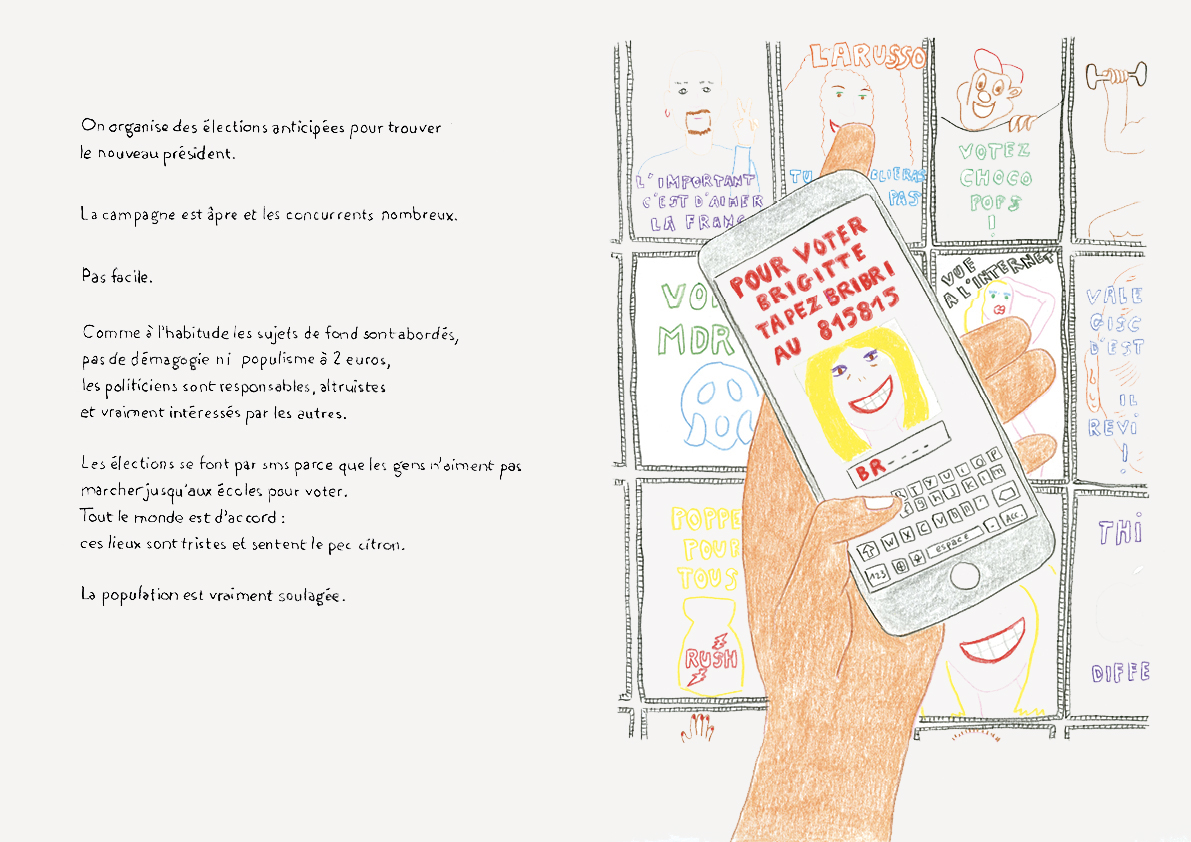 On organise des élections anticipées pour trouver
le nouveau président.
La campagne est âpre et les concurrents nombreux.
Pas facile.
Comme à l'habitude les sujets de fond sont abordés,
pas de démagogie ni populisme à 2 euros,
les politiciens sont responsables, altruistes
et vraiment intéressés par les autres.
Les élections se font par sms parce que les gens n'aiment pas
marcher jusqu'aux écoles pour voter.
Tout le monde est d'accord :
ces lieux sont tristes et sentent le pec citron.
La population est vraiment soulagée.
L'IMPORTANT
C'EST D'AIMER
LA FRANC
LARUSSO
TU BLIERAS
PAS
VOTEZ
CHOCO
POPS
!
VO
MDR
POUR VOTER
BRIGITTE
TAPEZ BRIBRI
AU 815815
BR-----
R T Y U I O P
g h j k l m
W X C V b n '
123 espace . Acc.
VUE
A L'INTERNET
VALE
GISC
D'EST
IL
REVI
!
POPPE
POUR
TOUS
RUSH
THI
DIFFE